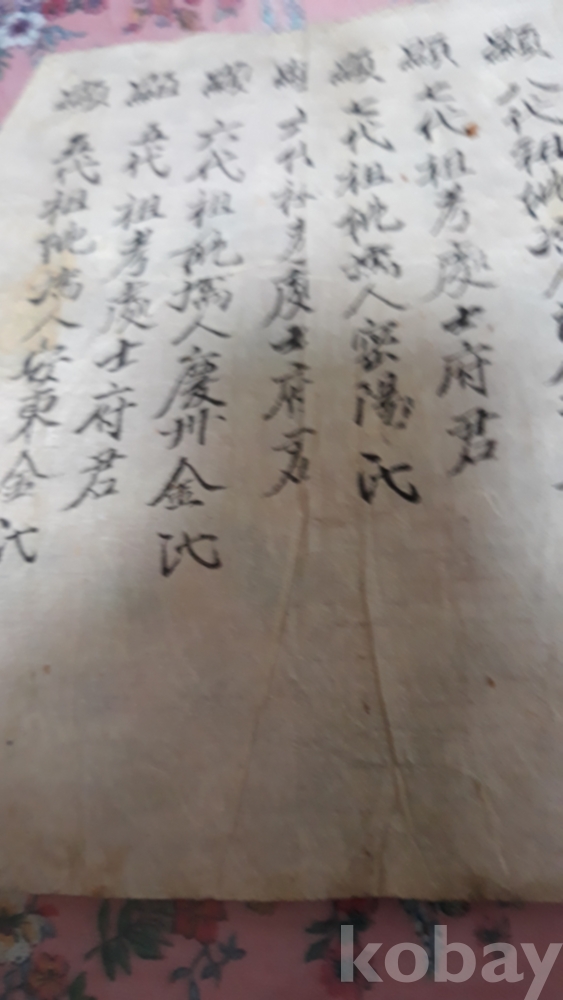 顯八代祖妣孺人
顯七代祖考處士府君
顯七代祖妣孺人密陽氏
六代祖考處士府君
顯六代祖妣孺人慶州金氏
顯五代祖考處士府君
顯五代祖妣孺人安東金氏
kobay